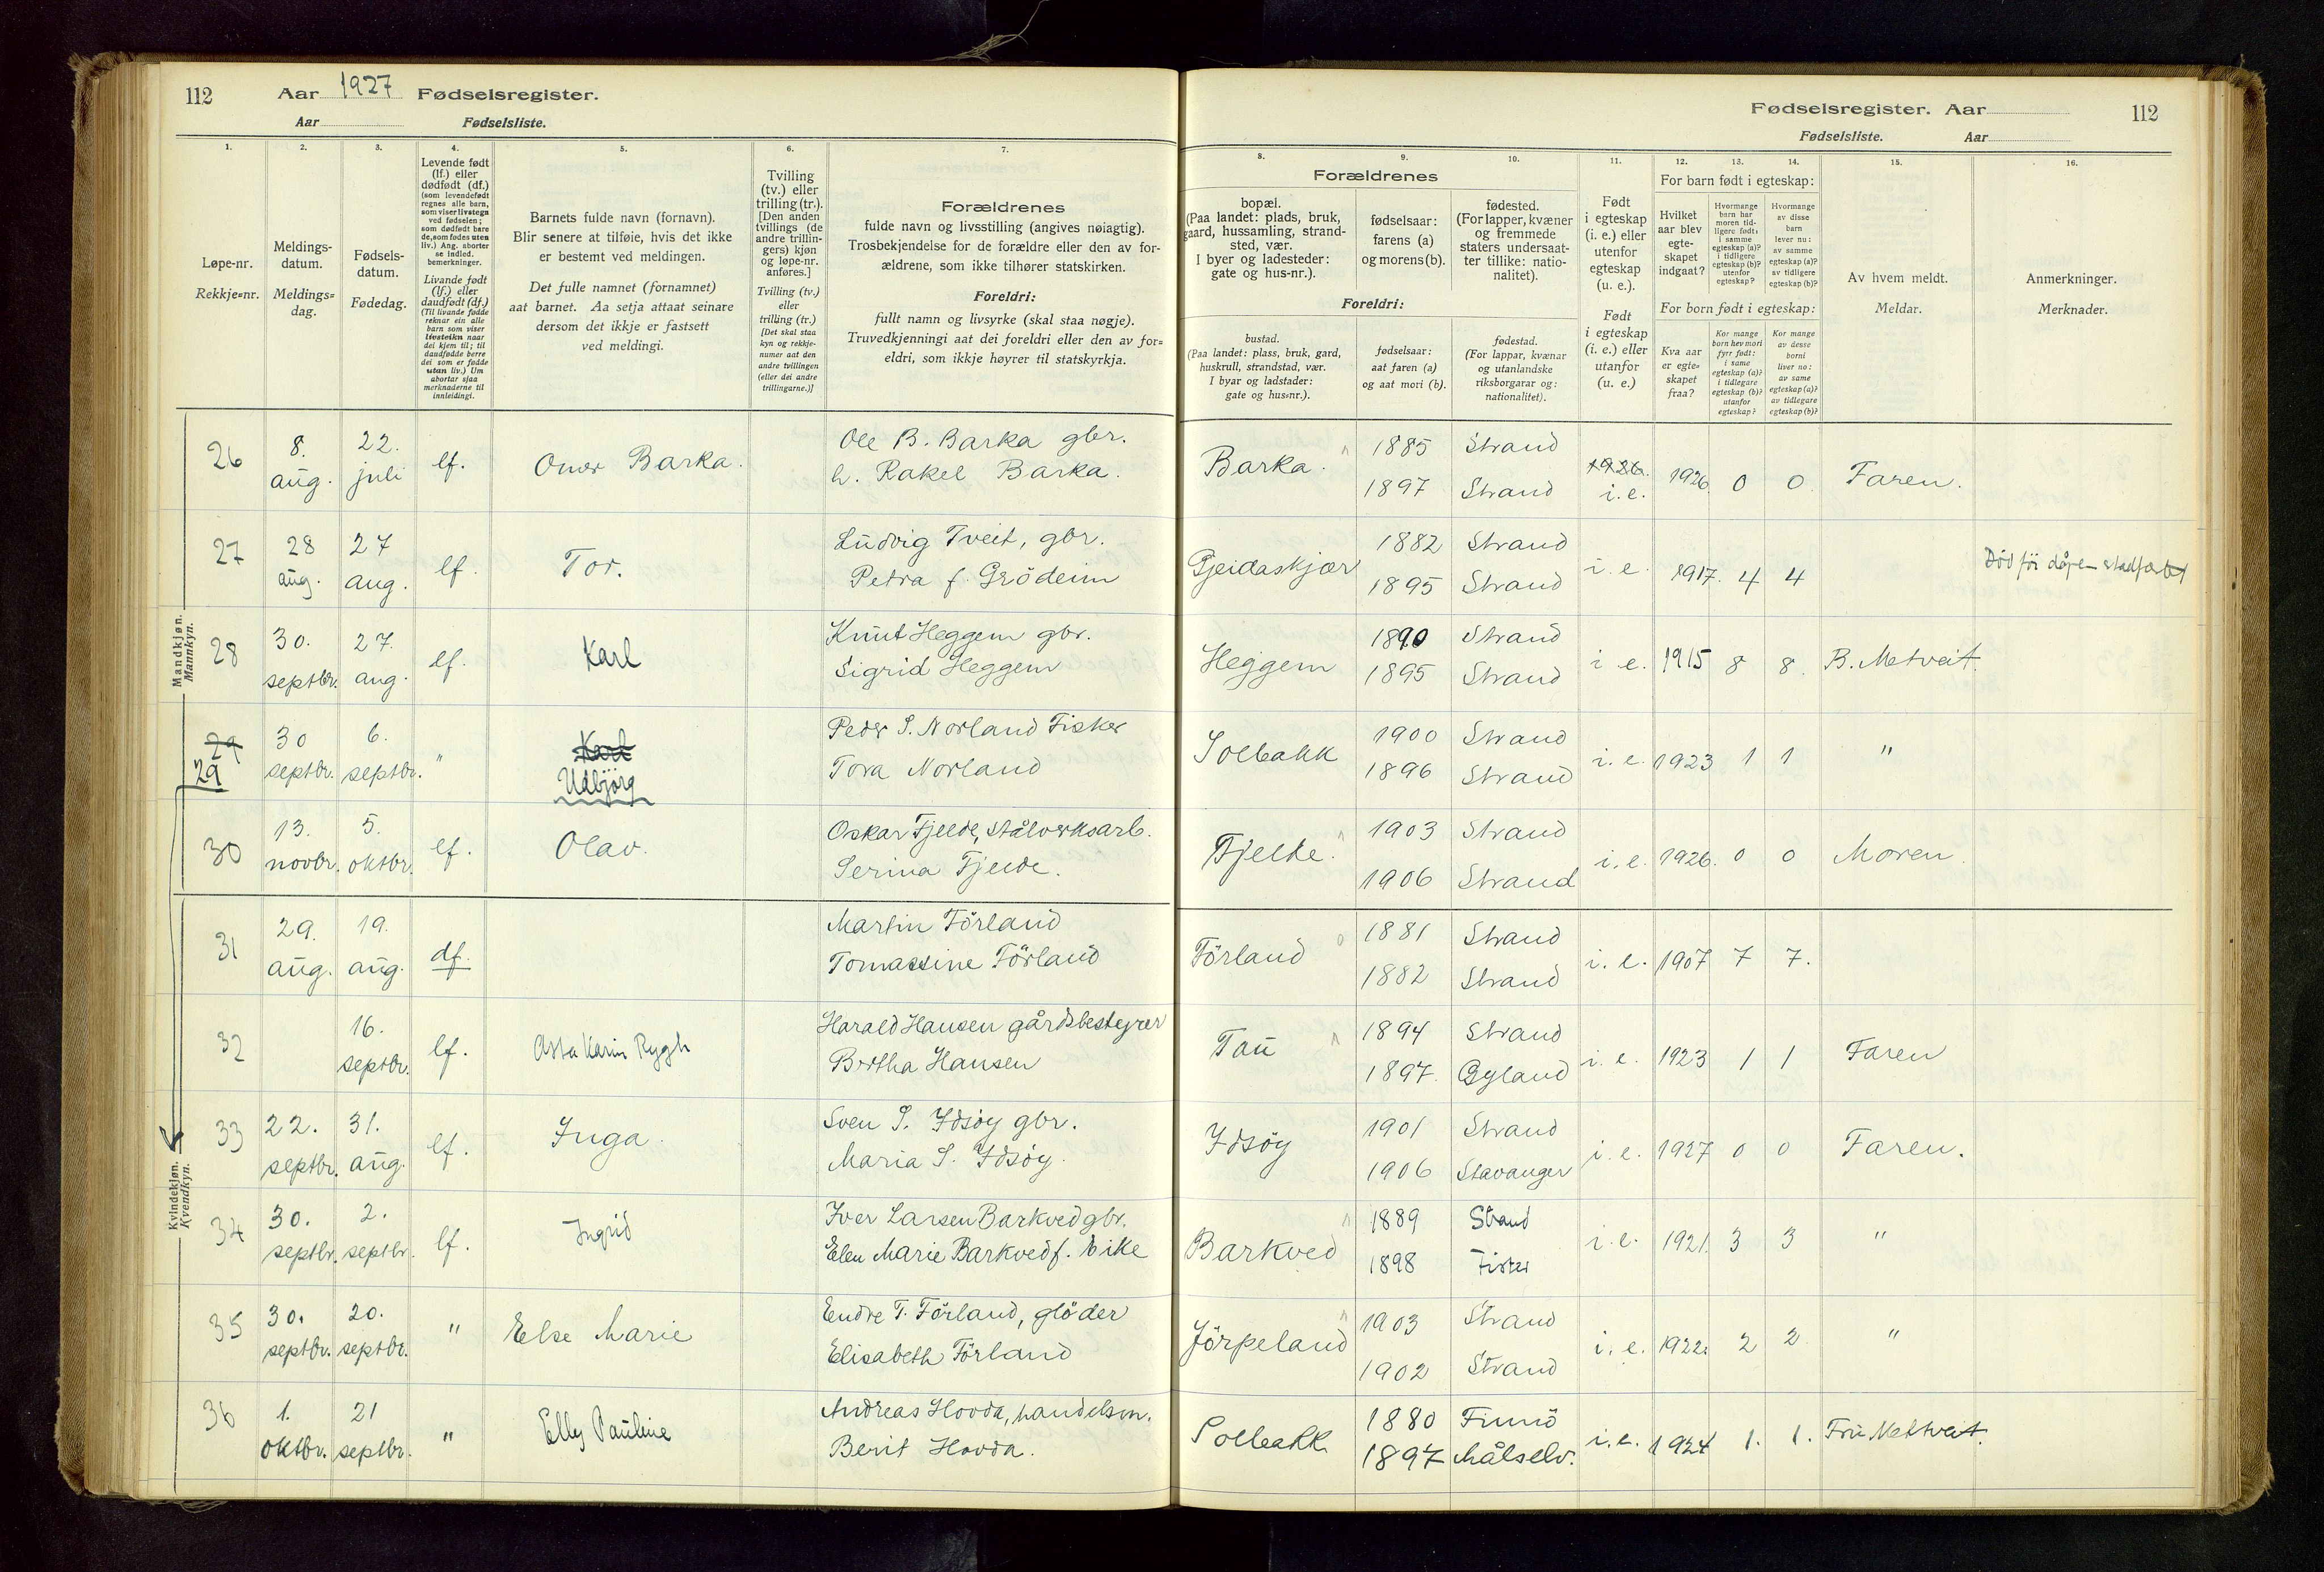 112 Aar 1927 Fødselsregister.
Aar Fødselsliste.
Fødselsregister. Aar 112
Fødselsliste. Aar
1. 2. 3. 4. 5. 6. 7. 8. 9. 10. 11. 12. 13. 14. 15. 16.
Løpe-nr.
Rekkje=nr.
Meldings-
datum.
Meldings=
dag.
Fødsels-
datum.
Fødedag.
Levende født
(lf.) eller
dødfødt (df.)
(som levendefødt
regnes alle barn,
som viser livstegn
ved fødselen;
som dødfødt bare
de, som fødes uten
liv.) Ang. aborter
se indled.
bemerkninger.
Livande født
(lf.) eller
daudfødt (df.)
(Til livande fødde
reknar ein alle
barn som viser
livsteikn naar
dei kjem til; til
daudfødde berre
dei som er fødde
utan liv.) Um
abortar sjaa
merknaderne til
innleidingi.
Barnets fulde navn (fornavn).
Blir senere at tilføie, hvis det ikke
er bestemt ved meldingen.
Det fulle namnet (fornamnet)
aat barnet. Aa setja attaat seinare
dersom det ikkje er fastsett
ved meldingi.
Tvilling
(tv.) eller
trilling (tr.).
[Den anden
tvillings (de
andre trillin-
gers) kjøn
og løpe-nr.
anføres.]
Tvilling (tv.)
eller
trilling (tr.)
[Det skal staa
kyn og rekkje-
numer aat den
andre tvillingen
(eller dei andre
trillingarne.)]
Forældrenes
fulde navn og livsstilling (angives nøiagtig).
Trosbekjendelse for de forældre eller den av for-
ældrene, som ikke tilhører statskirken.
Foreldri:
fullt namn og livsyrke (skal staa nøgje).
Truvedkjenningi aat dei foreldri eller den av for=
eldri, som ikkje høyrer til statskyrkja.
Forældrenes
bopæl.
(Paa landet: plads, bruk,
gaard, hussamling, strand-
sted, vær.
I byer og ladesteder:
gate og hus-nr.).
fødselsaar:
farens (a)
og morens (b).
fødested.
(For lapper, kvæner
og fremmede
staters undersaat-
ter tillike: natio-
nalitet).
Foreldri:
bustad.
(Paa landet: plass, bruk, gard,
huskrull, strandstad, vær.
I byar og ladstader:
gate og hus=nr.).
fødselsaar:
aat faren (a)
og aat mori (b).
fødestad.
(For lappar, kvænar
og utanlandske
riksborgarar og:
nationalitet).
Født
i egteskap
(i. e.) eller
utenfor
egteskap
(u. e.).
Født
i egteskap
(i. e.) eller
utanfor
(u. e.)
For barn født i egteskap:
Hvilket
aar blev
egte-
skapet
indgaat?
Hvormange
barn har
moren tid-
ligere født:
i samme
egteskap (a)?
i tidligere
egteskap (b)?
utenfor
egteskap?
Hvormange
av disse
barn
lever nu:
av samme
egteskap (a)?
av tidligere
egteskap (b)?
For born født i egteskap:
Kva aar
er egte=
skapet
fraa?
Kor mange
born hev mori
fyrr født:
i same
egteskap (a)?
i tidlegare
egteskap (b)?
utanfor
egteskap?
Kor mange
av desse
borni
liver no:
av same
egteskap (a)?
av tidlegare
egteskap (b)?
Av hvem meldt.
Meldar.
Anmerkninger.
Merknader.
Mandkjøn.
Mannkyn.
26 8. aug. 22. juli lf. Omar Barka. Ole B. Barka gbr. Barka. 1885 Strand 1926. 1926. 0 0 Faren.
h. Rakel Barka. 1897 Strand i.e.
27 28 aug. 27 aug. lf. Tor. Ludvig Tveit, gbr. Gjeidaskjær 1882 Strand i. e. 1917. 4 4 Död för dåpen stadfæstet
Petra f. Grödeim 1895 Strand
28 30. septbr. 27. aug. lf. Karl Knut Heggem gbr. Heggem 1890 Strand i. e. 1915 8 8. B. Metveit.
Sigrid Heggem 1895 Strand
29 30 septbr. 6. septbr. " Karl Peder S. Norland Fisker Solbakk 1900 Strand i. e. 1923 1 1 "
29 Udbjörg Tora Norland 1896 Strand
30 13. novbr. 5. oktbr. lf. Olav. Oskar Fjelde, stålverksarb. Fjelde. 1903 Strand i. e. 1926. 0 0 Moren.
Serina Fjelde. 1906 Strand
Kvindekjøn.
Kvendkyn.
31 29. aug. 19. aug. df. Martin Förland Förland 1881 Strand i. e. 1907 7 7.
Tomassine Förland 1882 Strand
32 16. septbr. lf. Asta Karin Rygh Harald Hansen gårdsbestyrer Tau 1894 Strand i. e. 1923 1 1 Faren
Bertha Hansen 1897. Gyland
33 22. septbr. 31. aug. lf. Inga. Sven S. Idsöy gbr. Idsöy 1901 Strand i. e. 1927 0 0 Faren.
Maria S. Idsöy. 1906 Stavanger
34 30. septbr. 2. septbr. lf. Ingrid Iver Larsen Barkved gbr. Barkved 1889 Strand i. e. 1921. 3 3 "
Elen Marie Barkved f. Eike 1898 Fister
35 30. septbr. 20. septbr. " Else Marie Endre T. Förland, glöder Jörpeland 1903 Strand i. e. 1922. 2 2 "
Elisabeth Förland 1902 Strand
36 1. oktbr. 21 septbr. " Elly Pauline Andreas Hovda, handelsm. Solbakk 1880 Finnö i. e. 1924 1. 1. Fru Mettveit.
Berit Hovda. 1897 Målselv.